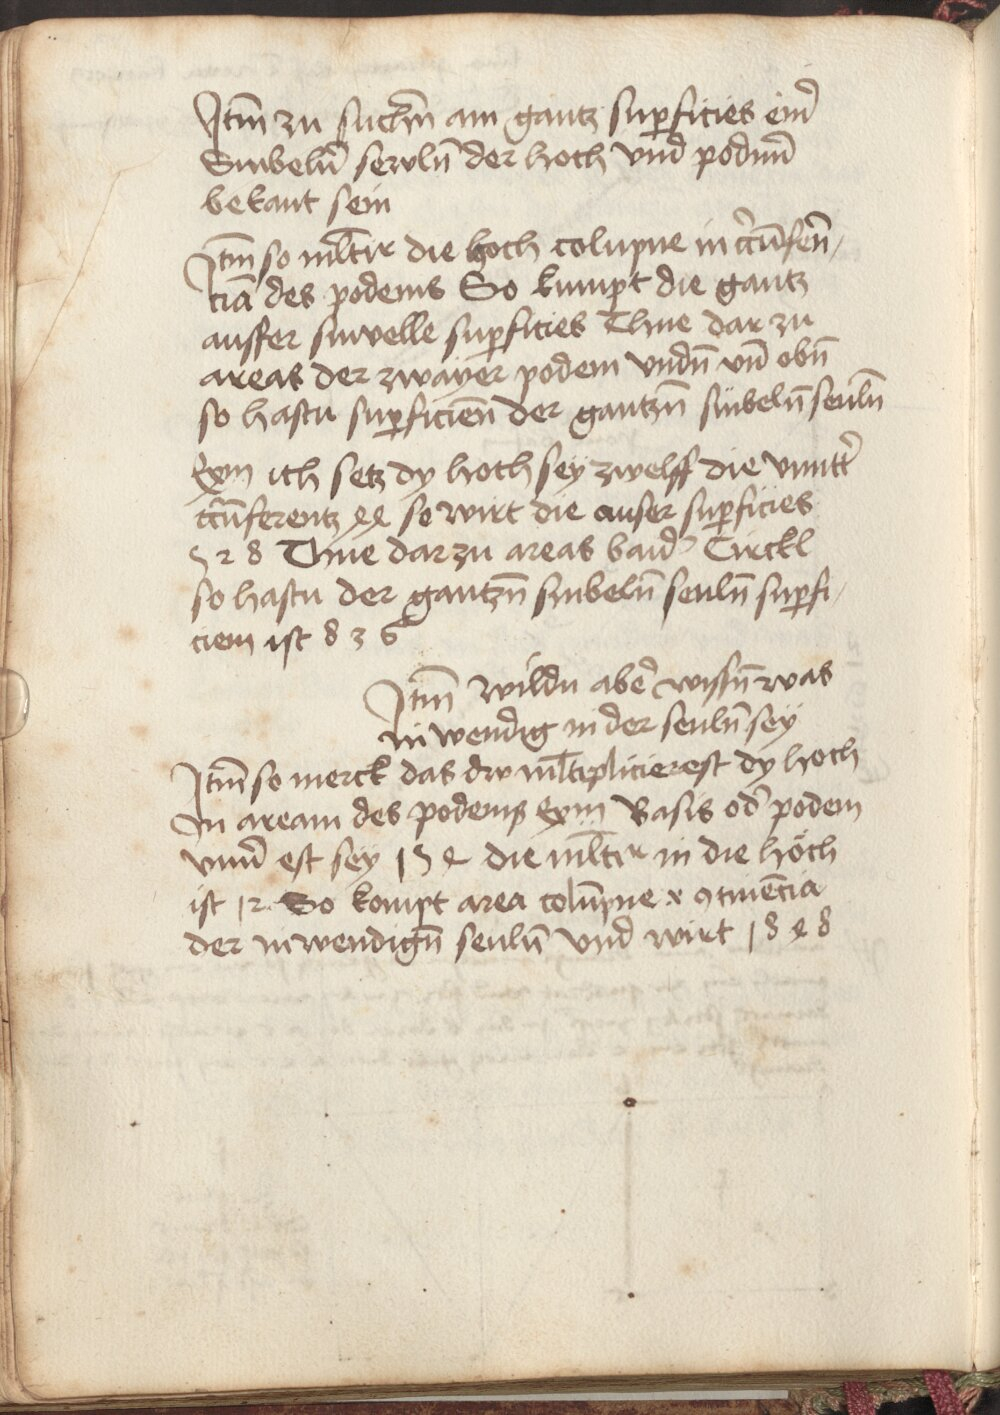 Itm̄ zu suchn̄ am gantz suꝑficies einˀ
Sinbeln̄ sewln̄ der hoch vnd podmˀ
bekant sein
Itm̄ so ml̄tir die hoch colupne in cˀcūfen̄-
ciā des podems So kumpt die gantz
ausser sinwelle suꝑficies Thue dar zu
areas der zwayer podem vndn̄ vn̄ obn̄
so hastu suꝑficien̄ der gantzn̄ sinbeln̄ seuln̄
Exm ich setz dy hoch sey zwelff die vmittˀ
cˀcūferentz 44 so wirt die auser suꝑficies
528 Thue dar zu areas baidˀ Circkl
so hastu der gantzn̄ sinbeln̄ seuln̄ suꝑfi-
ciem ist 836
Itm̄ wildu aber wissn̄ was
inwendig in der seuln̄ sey
Itm̄ so merck das dw ml̄tiplicierest dy hoch
In aream des podems Exm Basis odˀ podem
vnnˀ est sey 154 die ml̄tir in die höch
ist 12. So kompt area colūpne x ꝯtinēcia
der inwendign̄ seuln̄ vnd wirt 1848